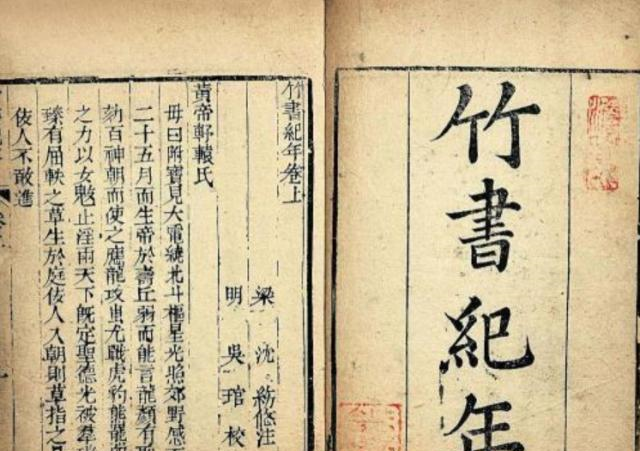 竹書紀年
竹書紀年卷上
梁 沈 注
明 吳 琯 校
黃帝軒轅氏
母曰附寶見大電繞北斗樞星光照郊野感而
二十五月而生帝於壽丘弱而能言龍顏有聖
劾百神朝而使之應龍攻蚩尤戰虎豹熊羆
之力以女魃止淫雨天下既定聖德光被羣
臻有屈軼之草生於庭佞人入朝則草指之是
佞人不敢進